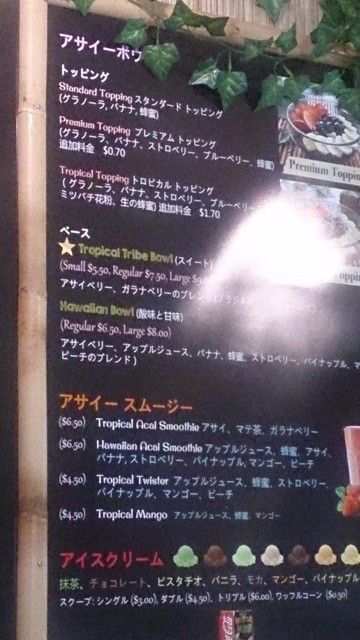 アサイーボウ
トッピング
Standard Topping スタンダード トッピング
(グラノーラ, バナナ, 蜂蜜)
Premium Topping プレミアム トッピング
(グラノーラ、バナナ、ストロベリー、ブルーベリー、蜂蜜)
追加料金 $0.70
Premium Toppin
Tropical Topping トロピカル トッピング
(グラノーラ、バナナ、ストロベリー、ブルーベリー
ミツバチ花粉、生の蜂蜜) 追加料金 $1.70
ベース
Tropical Tribe Bowl (スイート)
(Small $5.50, Regular $7.50, Large $9
アサイベリー、ガラナベリーのブレンド
Hawaiian Bowl (酸味と甘味)
(Regular $6.50, Large $8.00)
アサイベリー、アップルジュース、バナナ、蜂蜜、ストロベリー、パイナップル、マ
ピーチのブレンド)
アサイー スムージー
($6.50) Tropical Acai Smoothie アサイ、マテ茶、ガラナベリー
($6.50) Hawaiian Acai Smoothie アップルジュース、蜂蜜、アサイ、
バナナ, ストロベリー、パイナップル, マンゴー、ピーチ
($4.50) Tropical Twister アップルジュース、蜂蜜、ストロベリー、
パイナップル、マンゴー、ピーチ
($4.50) Tropical Mango アップルジュース、蜂蜜、マンゴー
アイスクリーム
抹茶、チョコレート、ピスタチオ、バニラ、モカ、マンゴー、パイナップル
スクープ: シングル ($3.00), ダブル ($4.50), トリプル ($6.00), ワッフルコーン ($0.50)